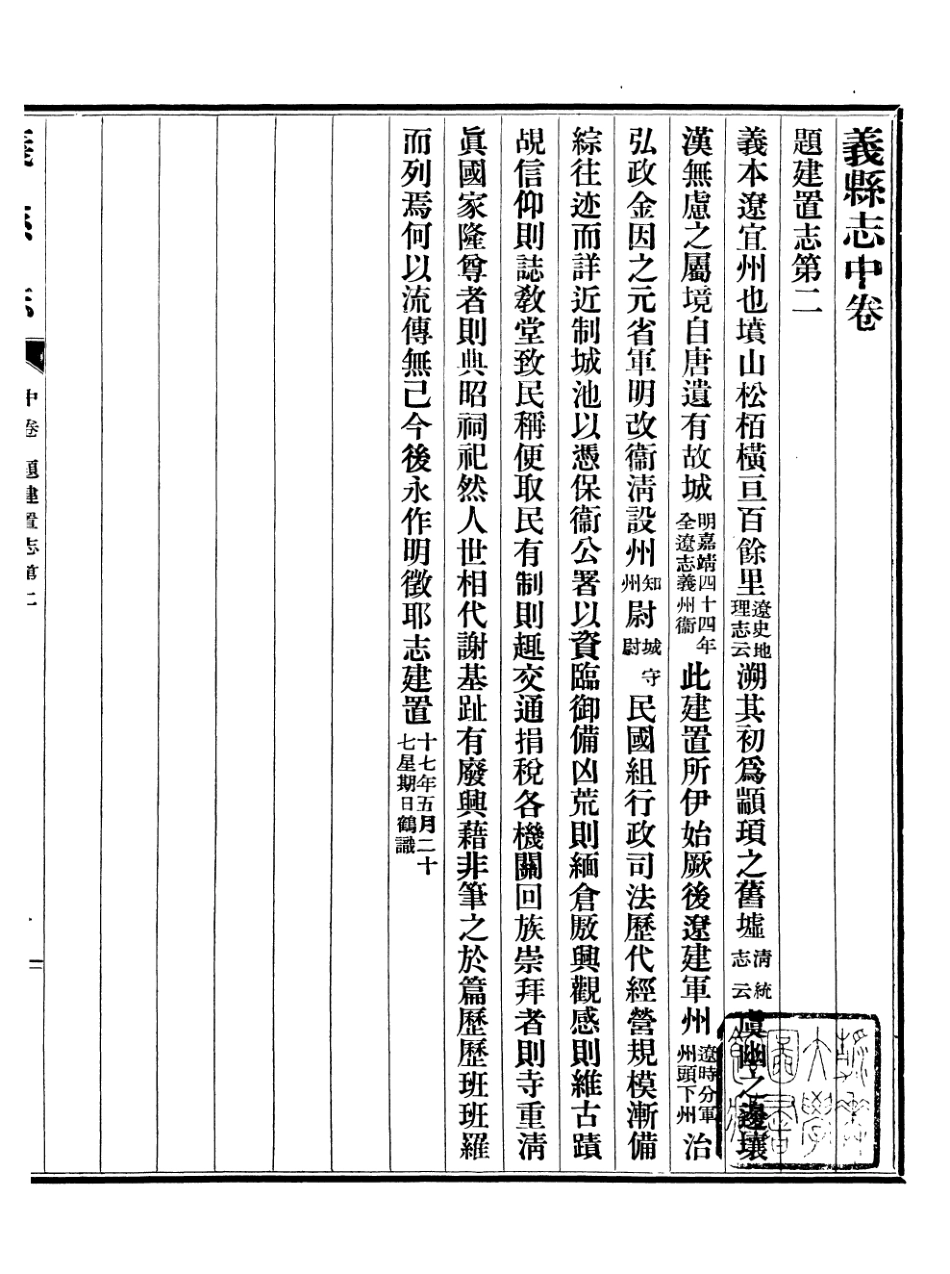 義縣志中卷
題建置志第二
義本遼宜州也墳山松栢橫亘百餘里遼史地理志云溯其初爲顓頊之舊墟清統志云虞幽之邊壤
漢無慮之屬境自唐遺有故城明嘉靖四十四年全遼志義州衞此建置所伊始厥後遼建軍州遼時分軍州頭下州治
弘政金因之元省軍明改衞清設州知州尉城守尉民國組行政司法歷代經營規模漸備
綜往迹而詳近制城池以憑保衞公署以資臨御備凶荒則緬倉厫興觀感則維古蹟
覘信仰則誌敎堂致民稱便取民有制則趣交通捐稅各機關回族崇拜者則寺重淸
眞國家隆尊者則典昭祠祀然人世相代謝基趾有廢興藉非筆之於篇歷歷班班羅
而列焉何以流傳無已今後永作明徵耶志建置十七年五月二十七星期日鶴識
義縣志
中卷 題建置志第二
二